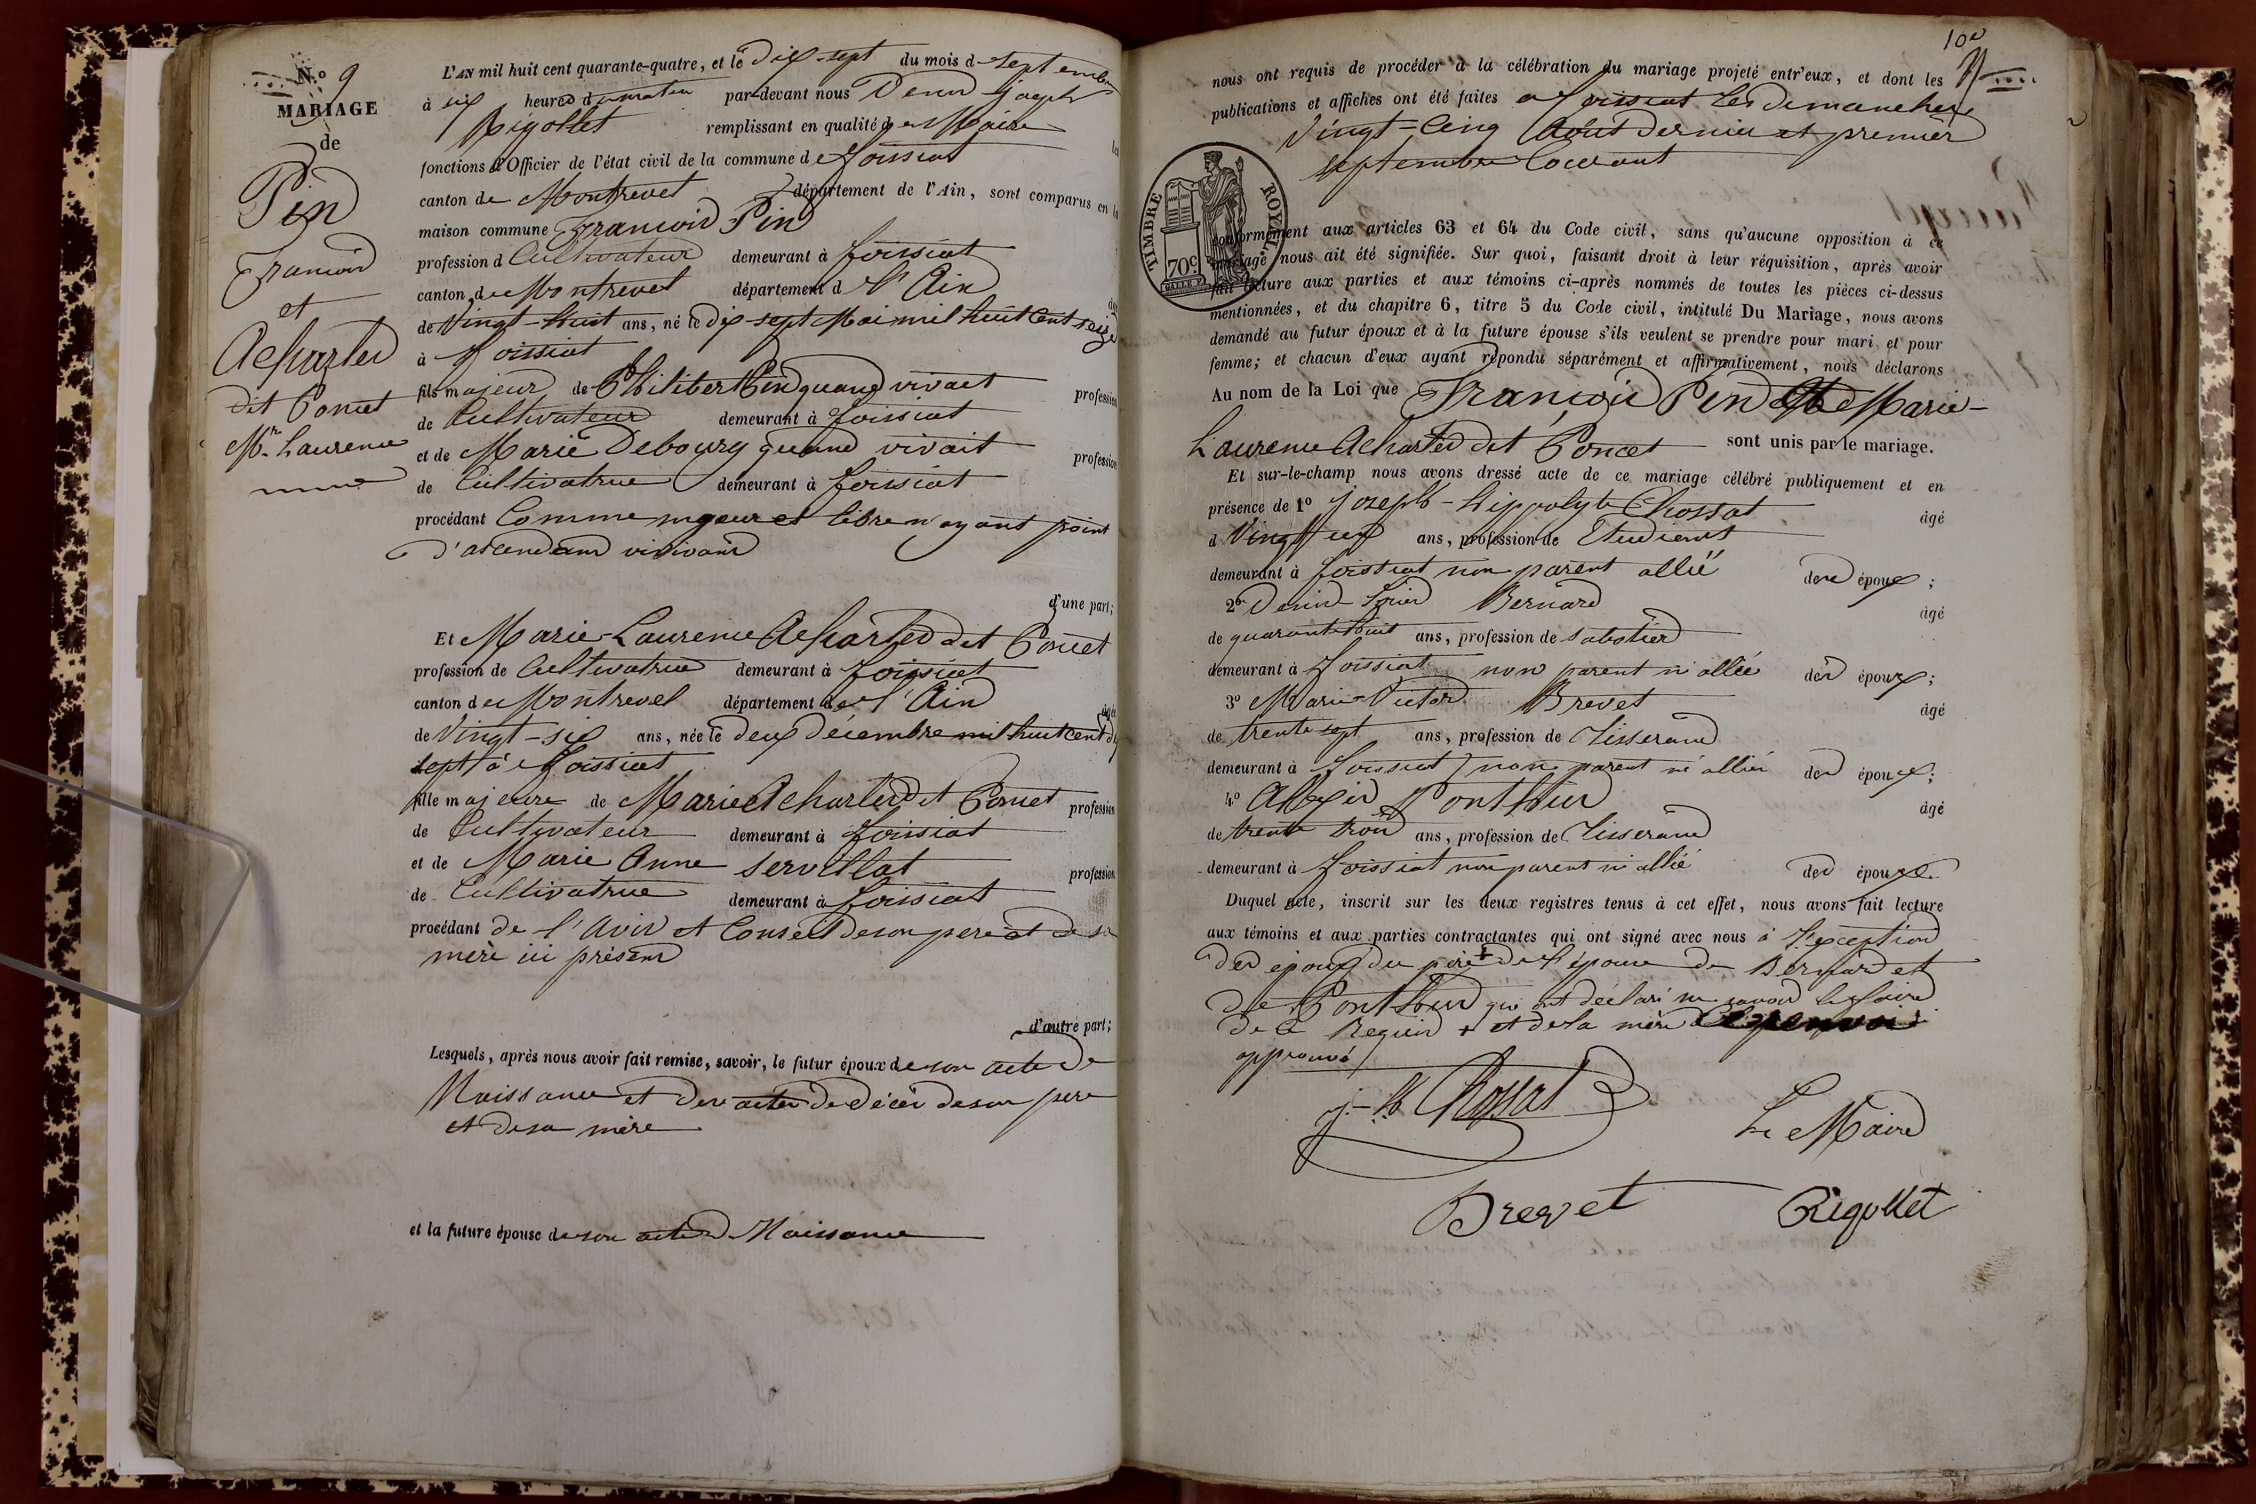 N.º 9
MARIAGE
de
Pin
François
et
Acharles
dit Poncet
Mie Laurence
L'AN mil huit cent quarante-quatre, et le dix-sept du mois de septembre
à six heures du matin par-devant nous Denis Joseph
Rigollet remplissant en qualité de Maire les
fonctions d'Officier de l'état civil de la commune de foissiat
canton de Montrevel département de l'Ain, sont comparus en la
maison commune François Pin
profession d Cultivateur demeurant à foissiat
canton de Montrevel département d l'Ain
de Vingt-huit ans, né le dix-sept Mai mil huit cent seize
à foissiat
fils majeur de Philibert Pin quand vivait profession
de Cultivateur demeurant à foissiat
et de Marie Debourg quand vivait profession
de Cultivatrice demeurant à foissiat
procédant Comme majeur et libre n'ayant point
d'ascendans vivans
d'une part;
Et Marie-Laurence Acharles dit Poncet
profession de Cultivatrice demeurant à foissiat
canton de Montrevel département de l'Ain âgée
de Vingt-six ans, née le deux décembre mil huit cent dix
sept à foissiat
fille majeure de Marie Acharles dit Poncet profession
de Cultivateur demeurant à foissiat
et de Marie Anne Servillat profession
de Cultivatrice demeurant à foissiat
procédant de l'avis et Conseil de son père et de sa
mère ici présens
d'autre part;
Lesquels, après nous avoir fait remise, savoir, le futur époux de son acte de
Naissance et des actes de décès de son père
et de sa mère
et la future épouse de son acte d Naissance
nous ont requis de procéder à la célébration du mariage projeté entr'eux, et dont les
publications et affiches ont été faites à foissiat les dimanches
Vingt-Cinq Août dernier et premier
septembre Courant
TIMBRE ROYAL
70c
conformément aux articles 63 et 64 du Code civil, sans qu'aucune opposition à ce
mariage nous ait été signifiée. Sur quoi, faisant droit à leur réquisition, après avoir
fait lecture aux parties et aux témoins ci-après nommés de toutes les pièces ci-dessus
mentionnées, et du chapitre 6, titre 5 du Code civil, intitulé Du Mariage, nous avons
demandé au futur époux et à la future épouse s'ils veulent se prendre pour mari et pour
femme; et chacun d'eux ayant répondu séparément et affirmativement, nous déclarons
Au nom de la Loi que François Pin et Marie-
Laurence Acharles dit Poncet sont unis par le mariage.
Et sur-le-champ nous avons dressé acte de ce mariage célébré publiquement et en
présence de 1º Joseph-hippolyte Chossat âgé
d ans, profession de Etudiant
demeurant à foissiat non parent allié des époux;
2º Denis Bernard âgé
de quarante huit ans, profession de sabotier
demeurant à foissiat non parent ni allié des époux;
3º Marie Victor Brevet âgé
de trente sept ans, profession de Tisserand
demeurant à foissiat non parent ni allié des époux;
4º Alexis Ponthus âgé
de trente trois ans, profession de Tisserand
demeurant à foissiat non parent ni allié des époux.
Duquel acte, inscrit sur les deux registres tenus à cet effet, nous avons fait lecture
aux témoins et aux parties contractantes qui ont signé avec nous à l'exception
des époux du père + de l'épouse de Bernard et
de Ponthus qui ont déclaré ne savoir le faire
de ce Requis + et de la mère
approuvé
j.-h. Chossat
Le Maire
Brevet
Rigollet